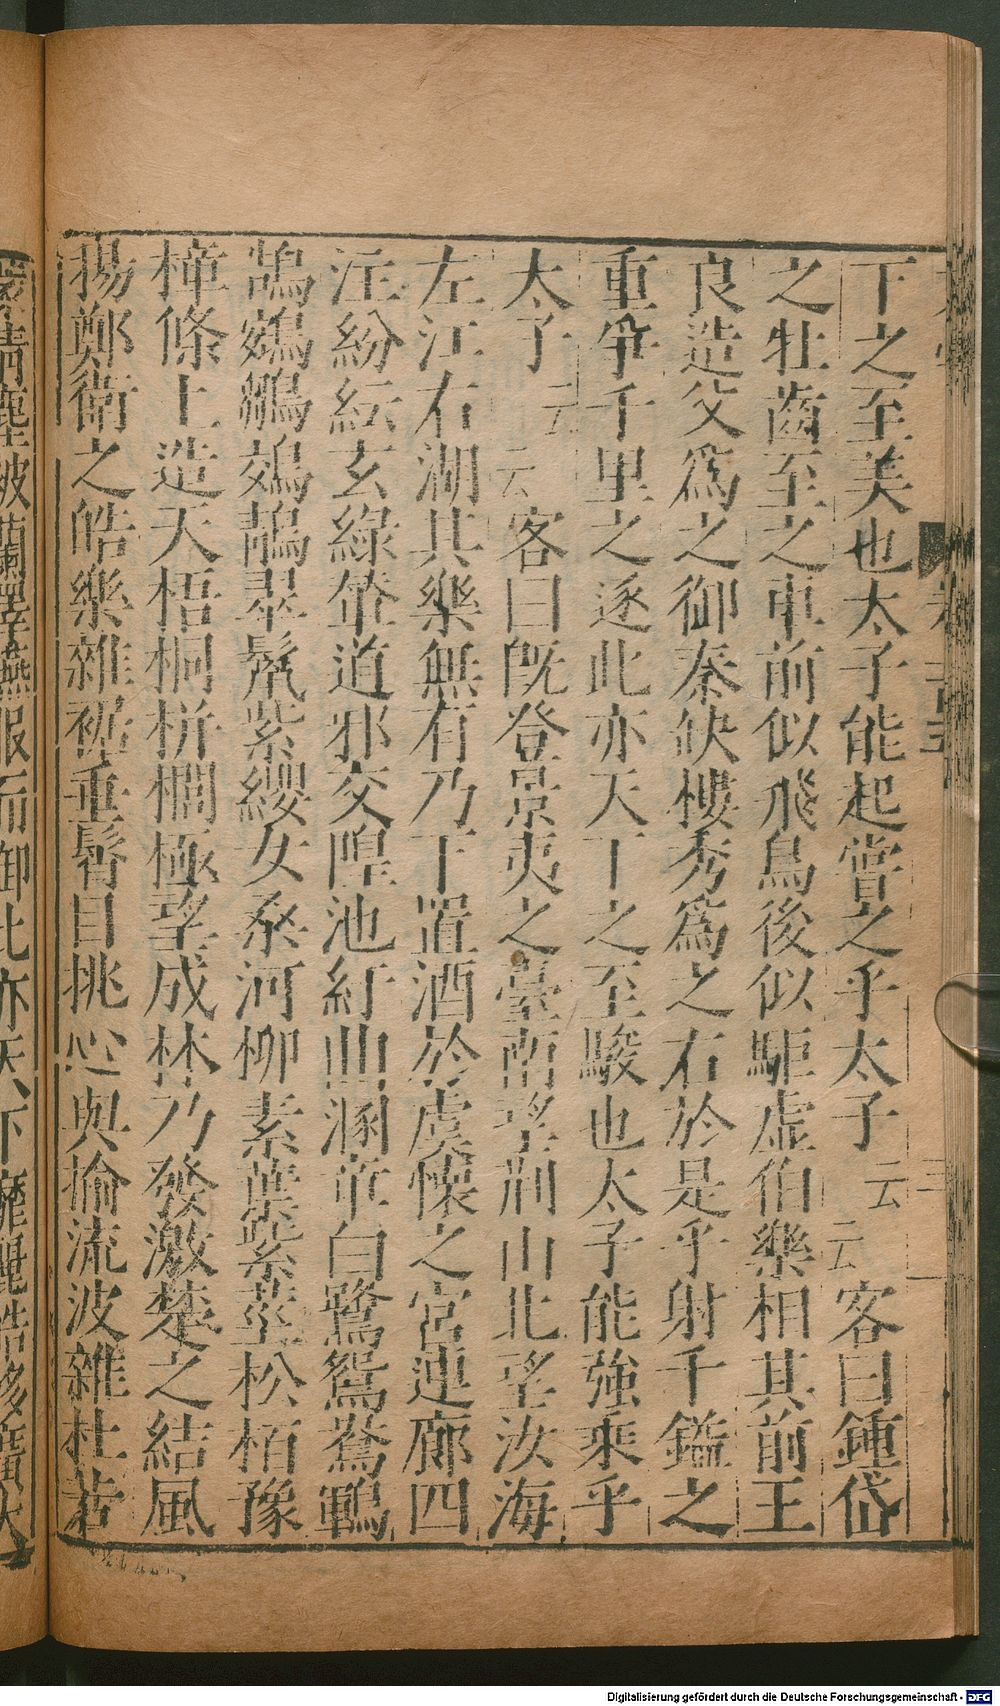 下之至美也太子能起嘗之乎太子云云客曰鍾岱
之牡齒至之車前似飛鳥後似駏虛伯樂相其前王
良造父爲之御秦缺樓秀爲之右於是乎射千鎰之
重爭千里之逐此亦天下之至駿也太子能強乘乎
太子云云客曰旣登景夷之臺南望荆山北望汝海
左江右湖其樂無有乃下置酒於虞懷之宮連廊四
注紛紜玄綠輦道邪交隍池紆曲溷章白鷺鴛鴦鶤
鵠鵷鶵鵁鶄翠鬣紫纓女桑河柳素葉紫莖松栢豫
樟條上造天梧桐栟櫚極望成林乃發激楚之結風
揚鄭衛之皓樂雜裾垂髾目挑心與揄流波雜杜若
蒙淸塵被蘭澤嬿服而御此亦天下靡麗皓侈廣大
Digitalisierung gefördert durch die Deutsche Forschungsgemeinschaft - DFG